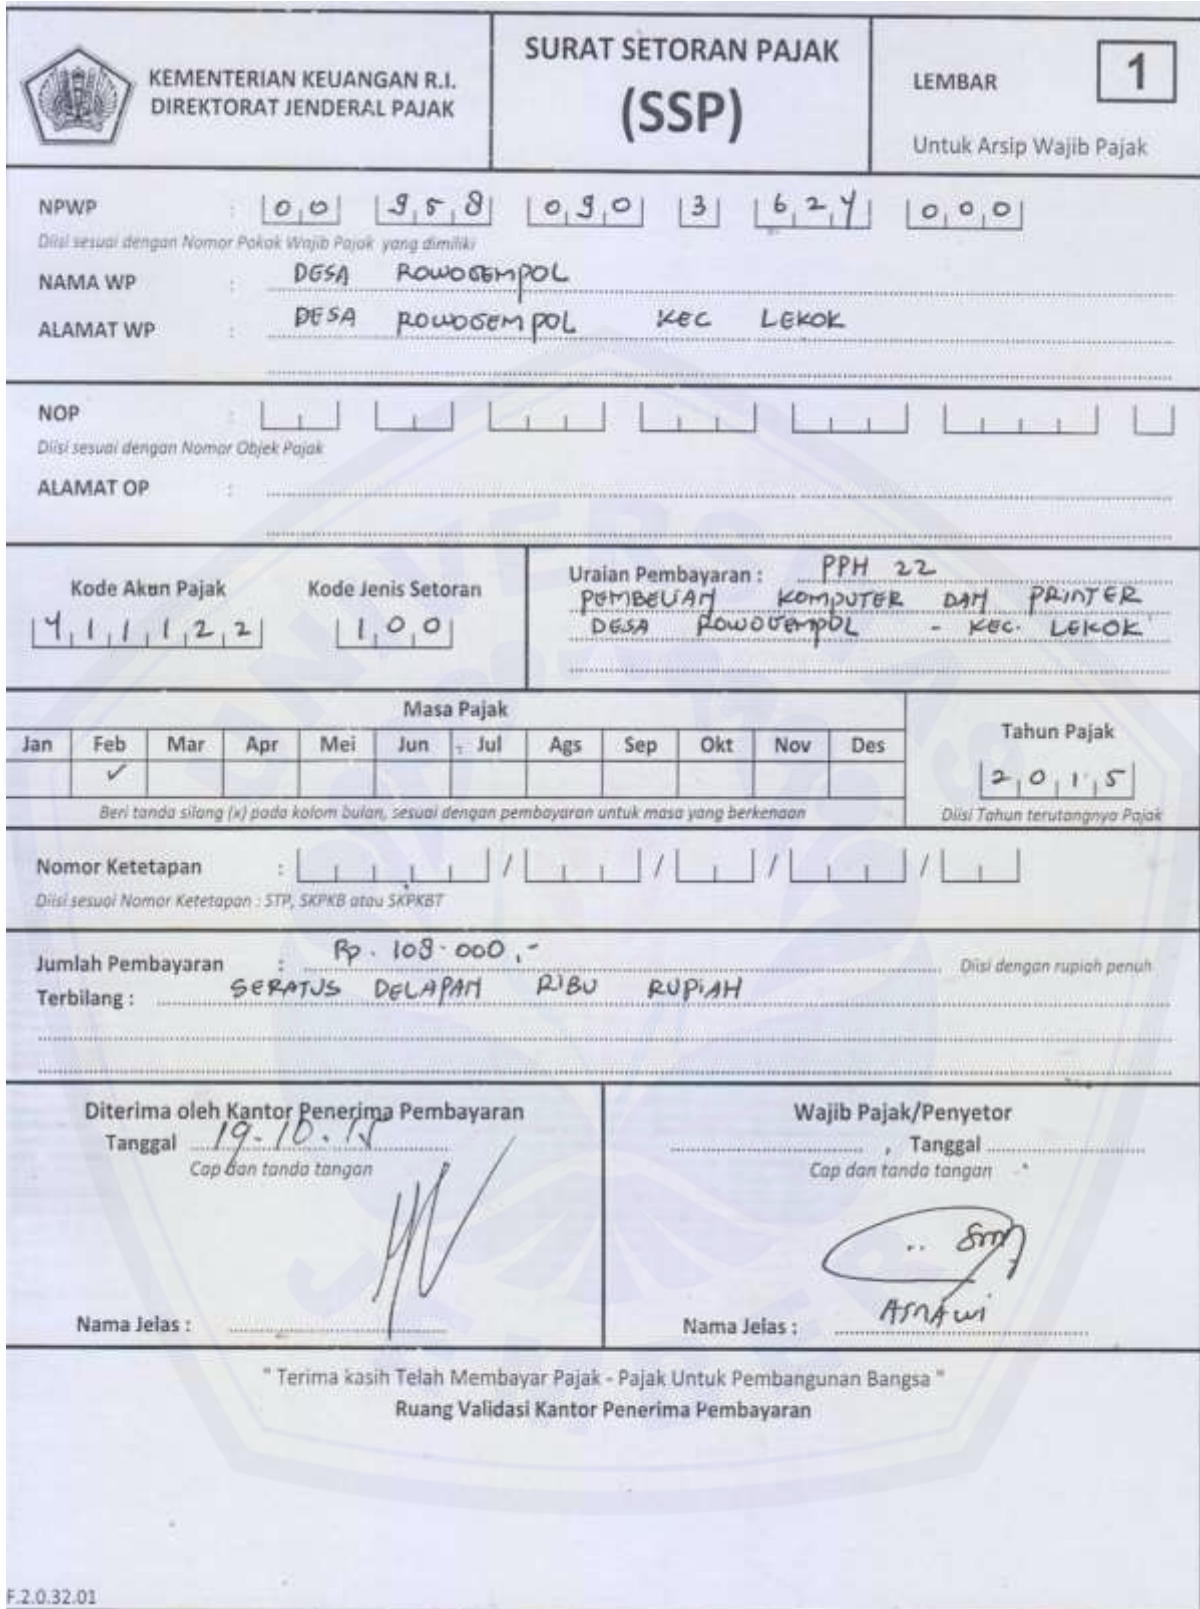 KEMENTERIAN KEUANGAN R.I.
DIREKTORAT JENDERAL PAJAK
SURAT SETORAN PAJAK
(SSP)
LEMBAR 1
Untuk Arsip Wajib Pajak
NPWP : 00 958 090 3 624 000
Diisi sesuai dengan Nomor Pokok Wajib Pajak yang dimiliki
NAMA WP : DESA ROWOGEMPOL
ALAMAT WP : DESA ROWOGEMPOL KEC LEKOK
NOP :
Diisi sesuai dengan Nomor Objek Pajak
ALAMAT OP :
Kode Akun Pajak Kode Jenis Setoran
411122 100
Uraian Pembayaran : PPH 22
PEMBELIAN KOMPUTER DAN PRINTER
DESA ROWOGEMPOL - KEC. LEKOK
Masa Pajak
Jan Feb Mar Apr Mei Jun Jul Ags Sep Okt Nov Des
✓
Beri tanda silang (x) pada kolom bulan, sesuai dengan pembayaran untuk masa yang berkenaan
Tahun Pajak
2015
Diisi Tahun terutangnya Pajak
Nomor Ketetapan : / / / /
Diisi sesuai Nomor Ketetapan : STP, SKPKB atau SKPKBT
Jumlah Pembayaran : Rp. 108.000,- Diisi dengan rupiah penuh
Terbilang : SERATUS DELAPAN RIBU RUPIAH
Diterima oleh Kantor Penerima Pembayaran
Tanggal 19-10-15
Cap dan tanda tangan
Nama Jelas :
Wajib Pajak/Penyetor
, Tanggal
Cap dan tanda tangan
Nama Jelas : ASNAWI
" Terima kasih Telah Membayar Pajak - Pajak Untuk Pembangunan Bangsa "
Ruang Validasi Kantor Penerima Pembayaran
F.2.0.32.01
UNIVERSITAS JEMBER